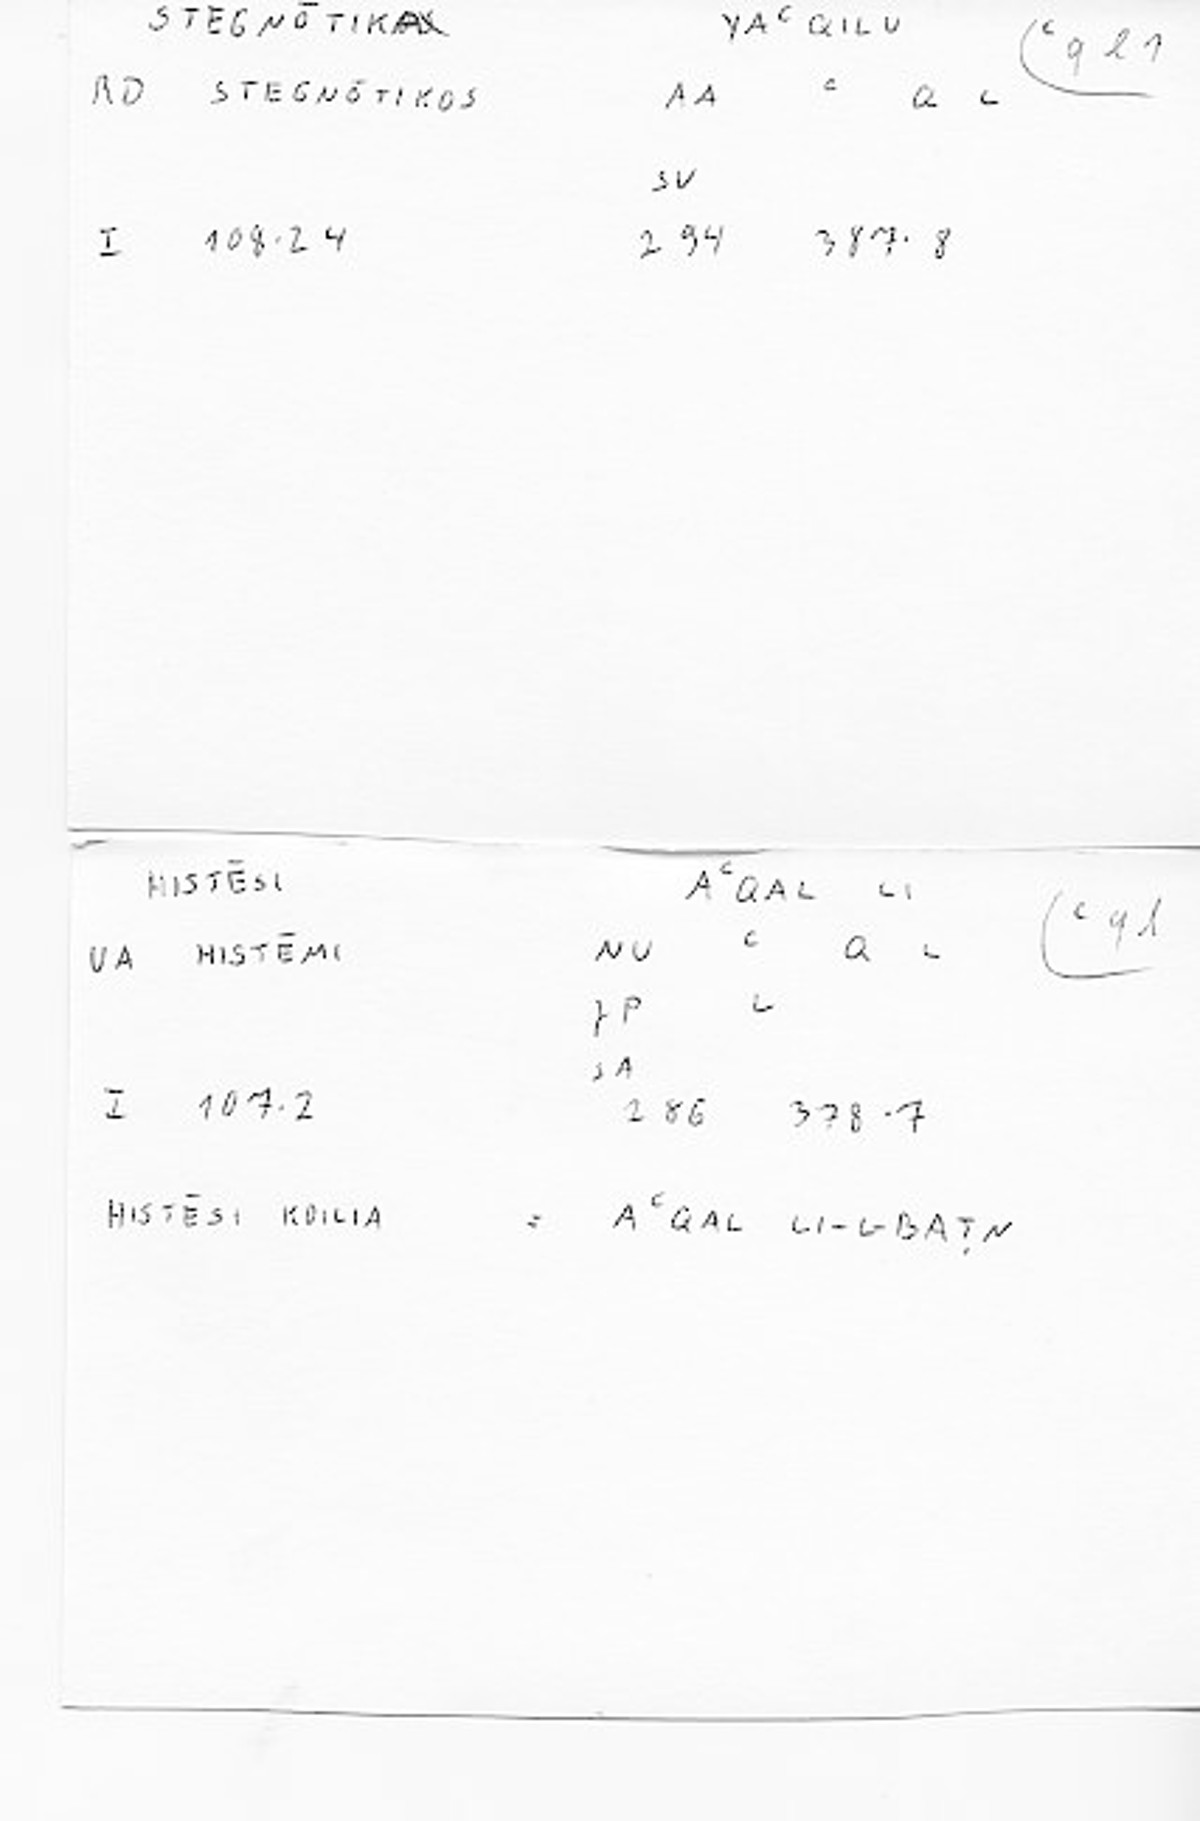 STEGNŌTIKA YAʿQILU (ʿql1
RO STEGNŌTIKOS AA ʿ Q L
SV
I 108.24 294 387.8
HISTĒSI AʿQAL LI (ʿql
VA HISTĒMI NU ʿ Q L
JP L
SA
I 107.2 286 378.7
HISTĒSI KOILIA = AʿQAL LI-L-BAṬN